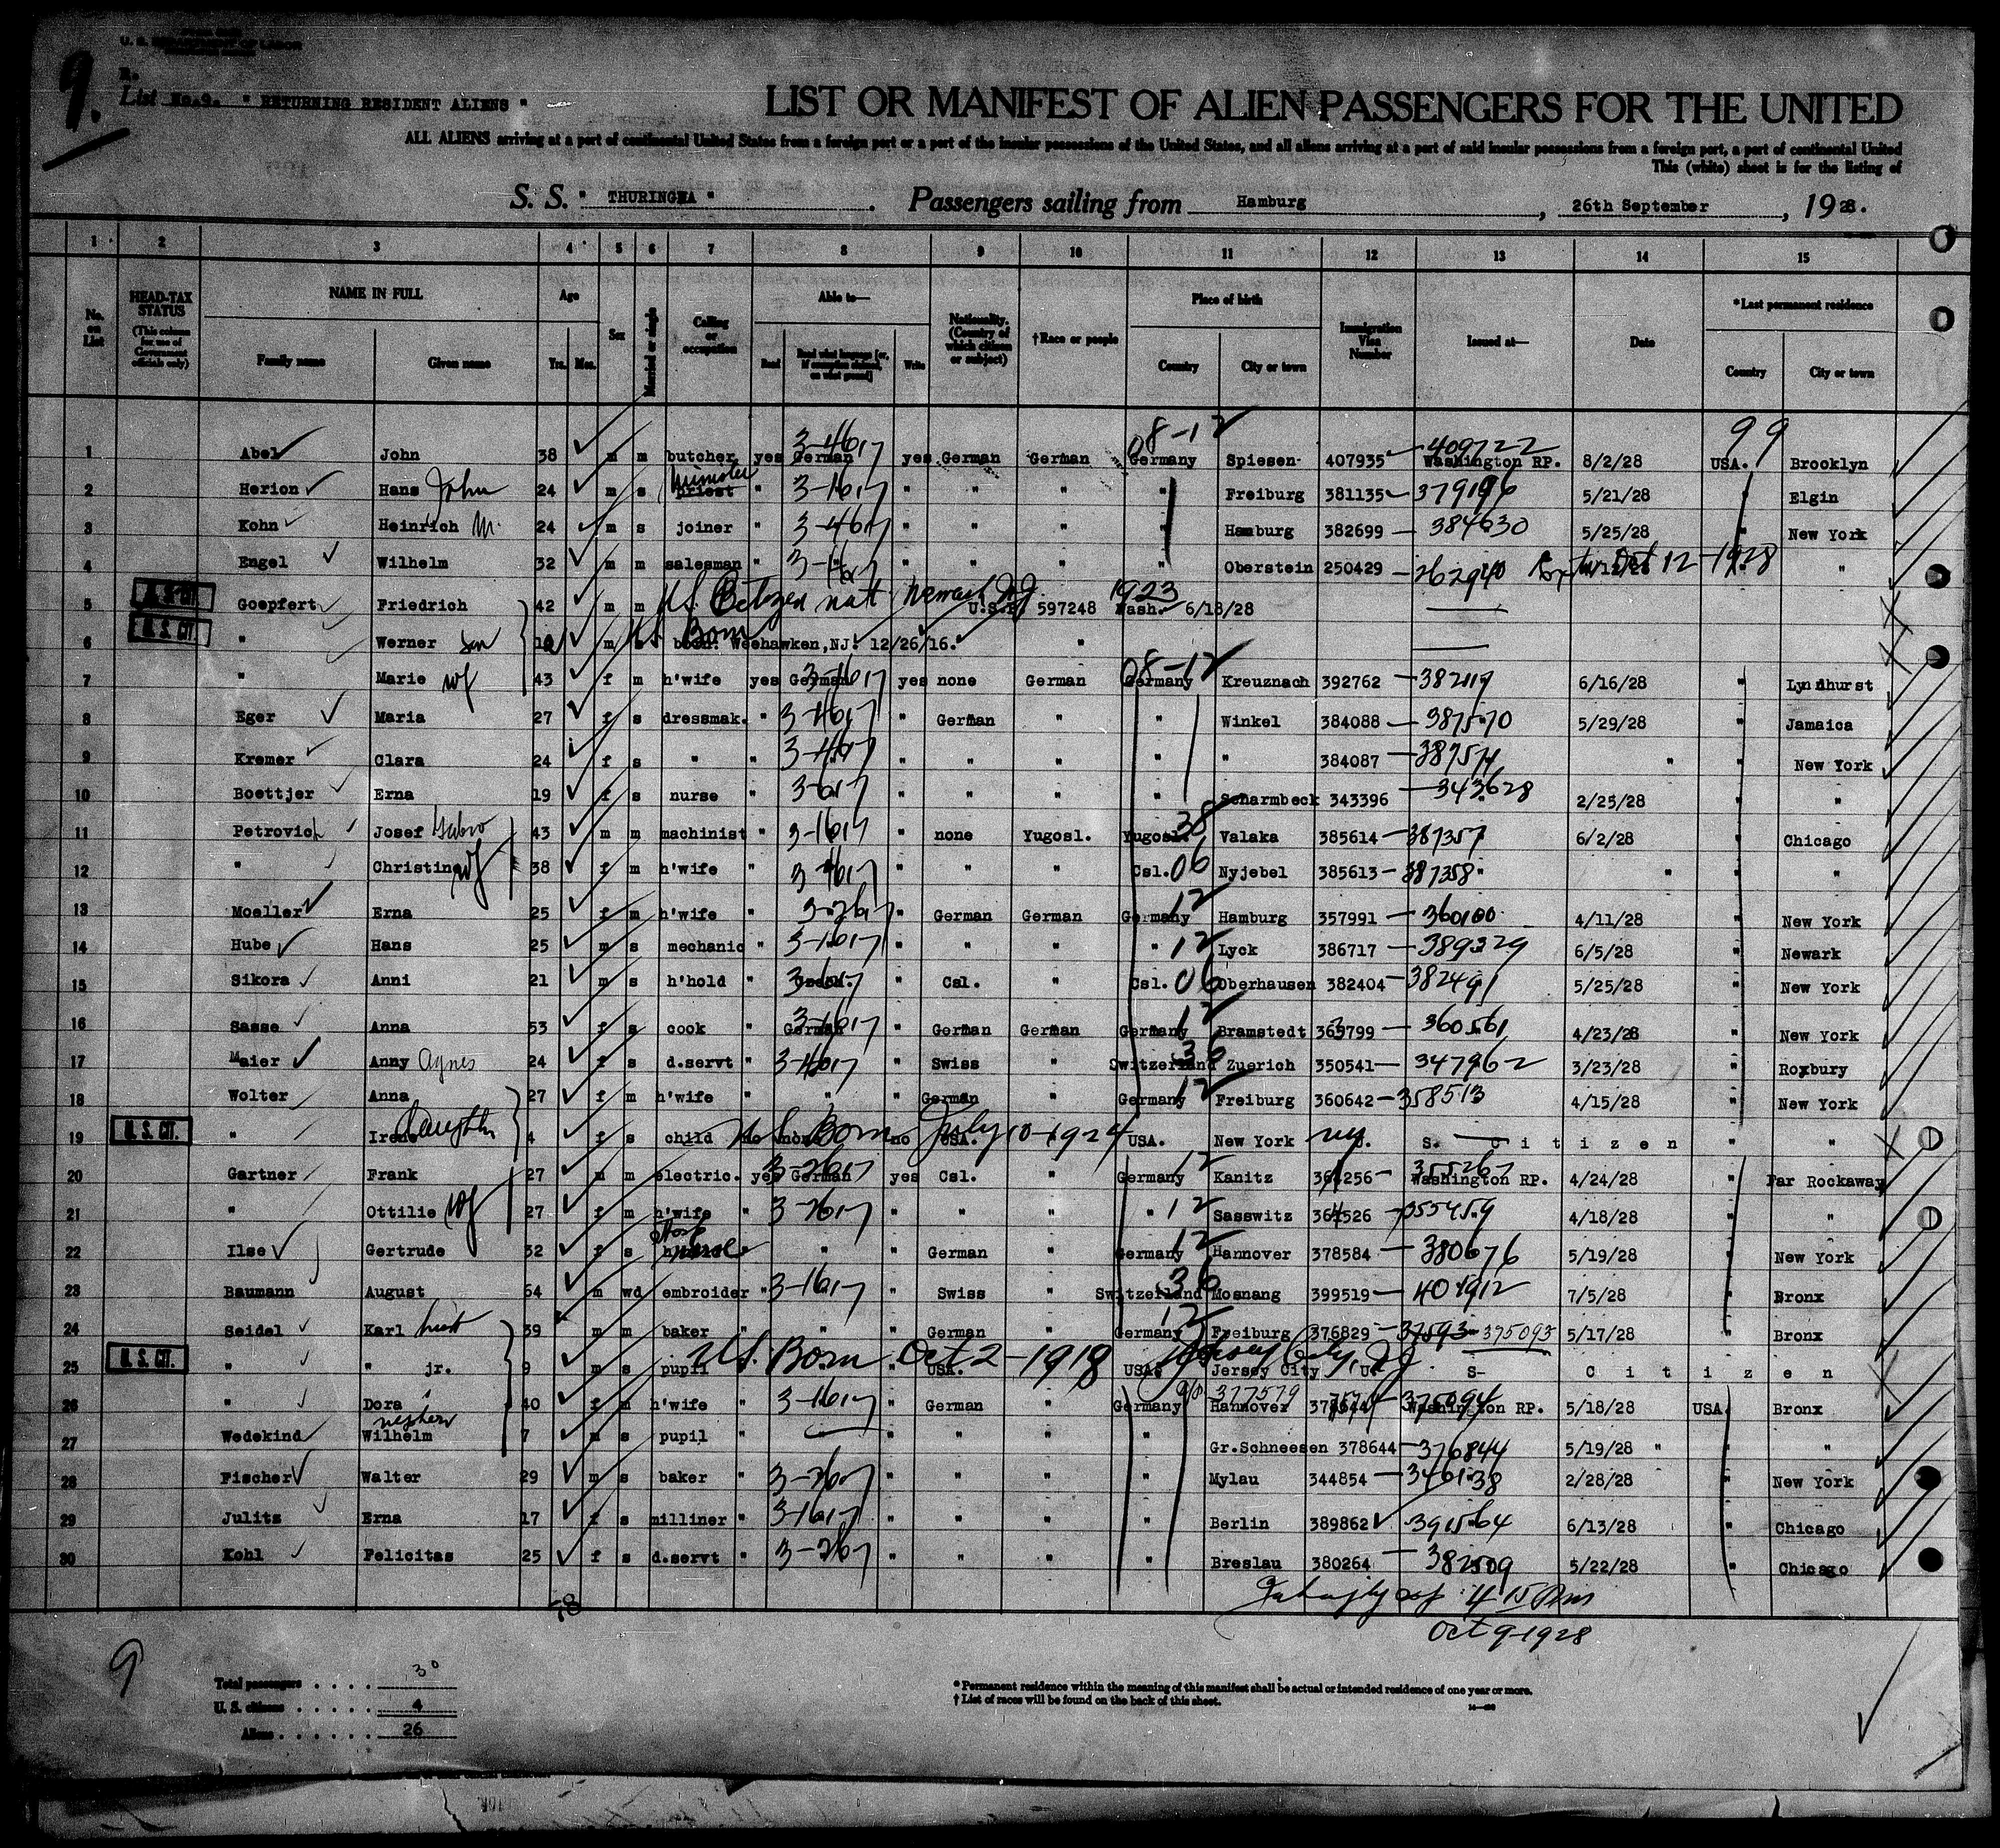 9.
U. S. DEPARTMENT OF LABOR
List No.9. " RETURNING RESIDENT ALIENS "
LIST OR MANIFEST OF ALIEN PASSENGERS FOR THE UNITED
ALL ALIENS arriving at a port of continental United States from a foreign port or a port of the insular possessions of the United States, and all aliens arriving at a port of said insular possessions from a foreign port, a port of continental United
This (white) sheet is for the listing of
S. S. " THURINGIA " . Passengers sailing from Hamburg , 26th September , 1928.
1 2 3 4 5 6 7 8 9 10 11 12 13 14 15
No. on List HEAD-TAX STATUS (This column for use of Government officials only) NAME IN FULL Age Sex Married or single Calling or occupation Able to— Nationality. (Country of which citizen or subject) †Race or people Place of birth Immigration Visa Number Issued at— Date *Last permanent residence
Family name Given name Yrs. Mos. Read Read what language [or, if exemption claimed, on what ground] Write Country City or town Country City or town
1 Abel John 38 m m butcher yes German yes German German Germany Spiesen 407935 409722 Washington RP. 8/2/28 USA. Brooklyn 08-12 99
2 Herion Hans John 24 m s priest minister " " " " " Freiburg 381135 379196 5/21/28 " Elgin
3 Kohn Heinrich M. 24 m s joiner " " " " " Hamburg 382699 384630 5/25/28 " New York
4 Engel Wilhelm 32 m m salesman " " " " " Oberstein 250429 262940 Oct 12-1928 " "
5 U. S. CIT. Goepfert Friedrich 42 m m US Citizen nat Newark NJ 1923 U.S.P. 597248 Wash. 6/18/28
6 U. S. CIT. " Werner son m s US Born born: Weehawken,NJ. 12/26/16. "
7 " Marie wf 43 f m h'wife yes German yes none German Germany 08-12 Kreuznach 392762 382119 6/16/28 " Lyndhurst
8 Eger Maria 27 f s dressmak. " 3-1617 " German " " Winkel 384088 387570 5/29/28 " Jamaica
9 Kremer Clara 24 f s " " " " " " " 384087 387571 " " New York
10 Boettjer Erna 19 f s nurse " " " " " Scharmbeck 343396 343628 2/25/28 " "
11 Petrovich Josef 43 m m machinist " 3-1617 " none Yugosl. Yugosl. 38 Valaka 385614 387357 6/2/28 " Chicago
12 " Christina wf 38 f m h'wife " " " " Csl. 06 Nyjebel 385613 387358 " " "
13 Moeller Erna 25 f m h'wife " " German German Germany 12 Hamburg 357991 360100 4/11/28 " New York
14 Hube Hans 25 m s mechanic " 3-1617 " " " " 12 Lyck 386717 389329 6/5/28 " Newark
15 Sikora Anni 21 m s h'hold " " Csl. " Csl. 06 Oberhausen 382404 382491 5/25/28 " New York
16 Sasse Anna 53 f s cook " German " German German Germany 12 Bramstedt 363799 360561 4/23/28 " New York
17 Maier Anny Agnes 24 f s d.servt " " Swiss " Switzerland 36 Zuerich 350541 347962 3/23/28 " Roxbury
18 Wolter Anna 27 f m h'wife " " " German " Germany 12 Freiburg 360642 358513 4/15/28 " New York
19 U. S. CIT. " Irene daughter 4 f s child no none no US Born July 10-1924 USA. USA. New York NY. U. S. C i t i z e n " "
20 Gartner Frank 27 m m electric. yes German yes Csl. " Germany 12 Kanitz 361256 355267 Washington RP. 4/24/28 " Far Rockaway
21 " Ottilie wf 27 f m h'wife " 3-2617 " " " " 12 Sasswitz 364526 355459 4/18/28 " "
22 Ilse Gertrude 32 f s nurse " " German " Germany 12 Hannover 378584 380676 5/19/28 " New York
23 Baumann August 64 m wd embroider " 3-1617 " Swiss " Switzerland 36 Mosnang 399519 401912 7/5/28 " Bronx
24 Seidel Karl 39 m m baker " " " German " Germany 12 Freiburg 376829 37593 375093 5/17/28 " Bronx
25 U. S. CIT. " " jr. 9 m s pupil US Born Oct 2-1918 USA. USA. Jersey City NJ Jersey City U. S- C i t i z e n
26 " Dora 40 f m h'wife " 3-1617 " German " Germany Hannover 377579 375094 Washington RP. 5/18/28 USA. Bronx
27 Wedekind Wilhelm nephew 7 m s pupil " " " " " Gr.Schneesen 378644 376844 5/19/28 " "
28 Fischer Walter 29 m s baker " 3-2617 " " " " Mylau 344854 346138 2/28/28 " New York
29 Julitz Erna 17 f s milliner " 3-1617 " " " " Berlin 389862 391564 6/13/28 " Chicago
30 Kohl Felicitas 25 f s d.servt " 3-2617 " " " " Breslau 380264 382509 5/22/28 " Chicago
4 15 Pm
Oct 9-1928
9
Total passengers . . . . 30
U. S. citizens . . . . . 4
Aliens . . . . . . 26
* Permanent residence within the meaning of this manifest shall be actual or intended residence of one year or more.
† List of races will be found on the back of this sheet.